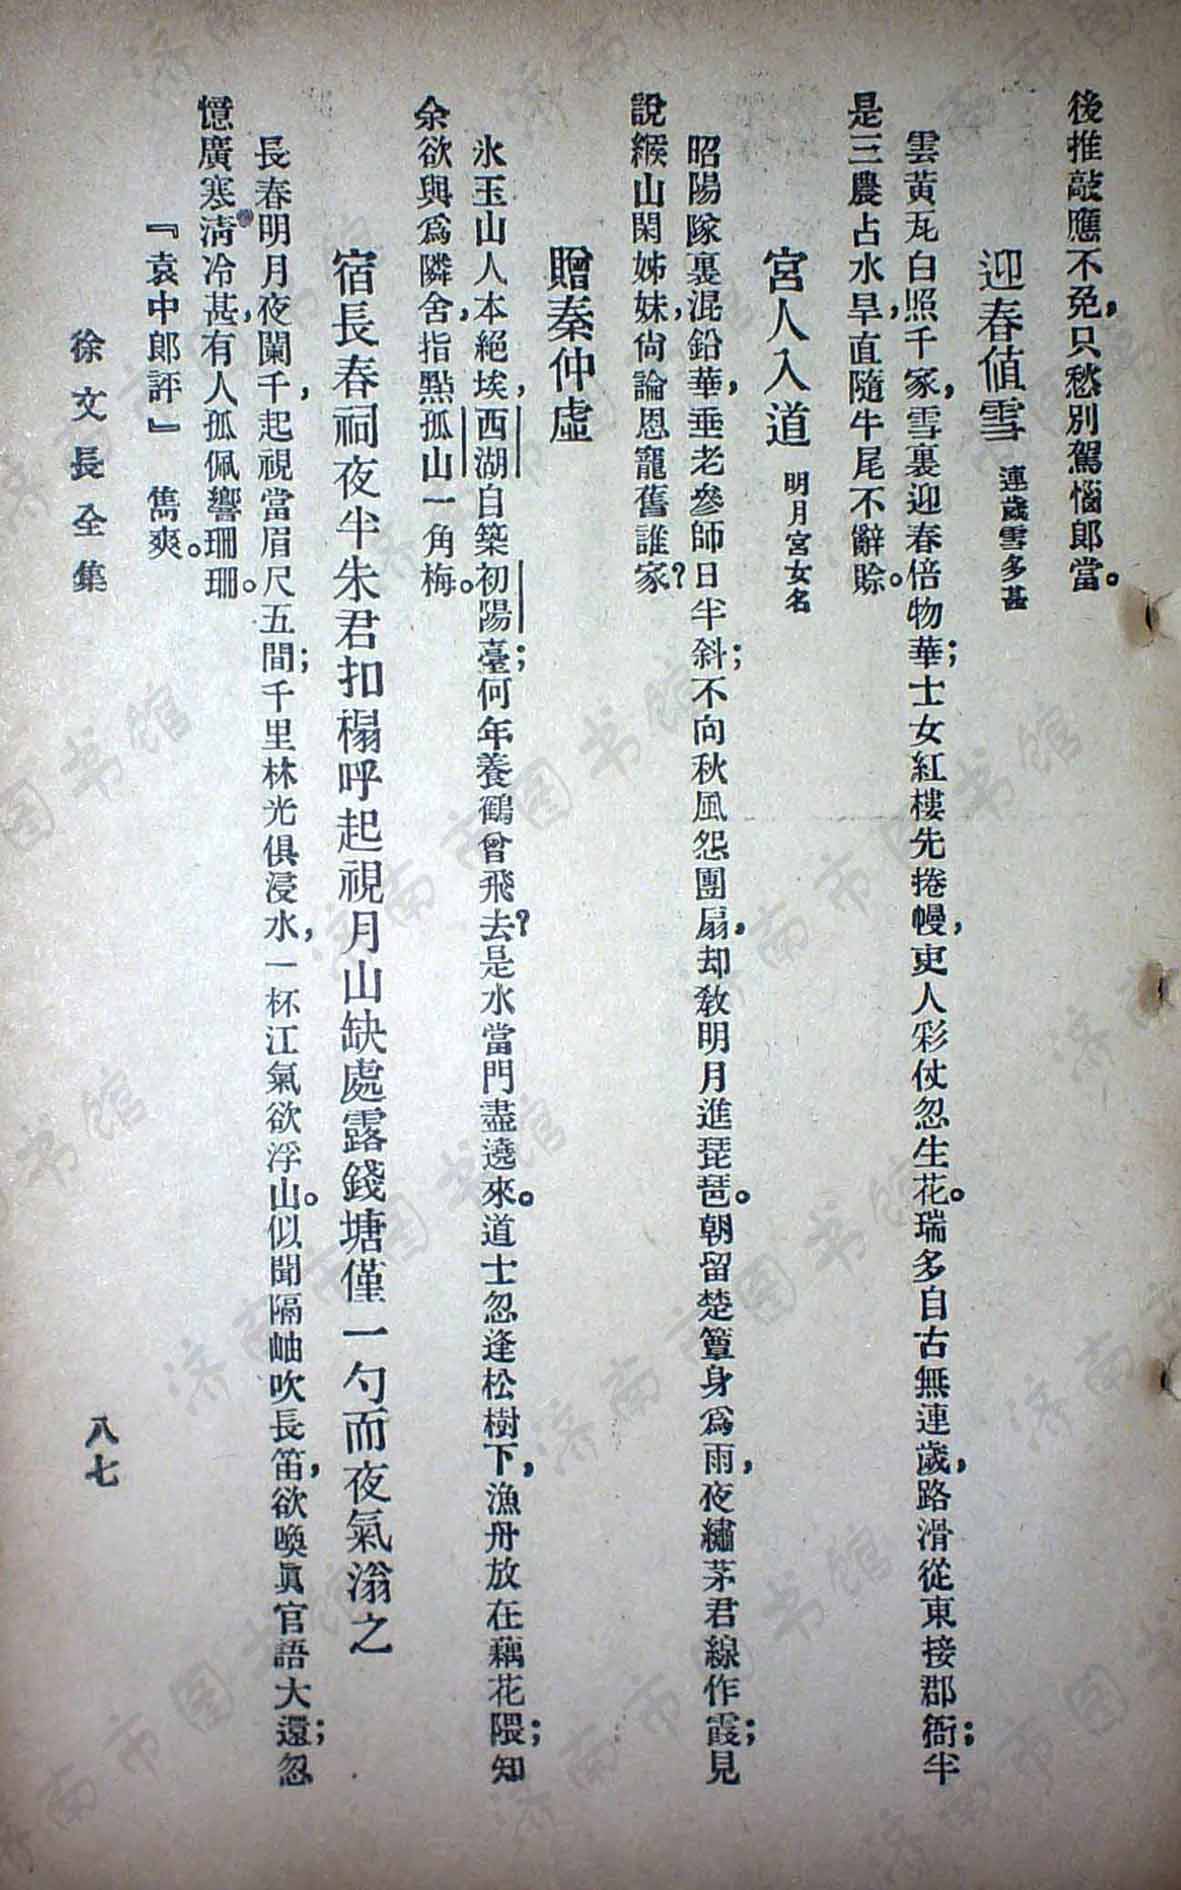 後推敲應不免，只愁別駕惱郎當。
迎春值雪　連歲雪多甚
雲黃瓦白照千家，雪裏迎春倍物華；士女紅樓先捲幔，吏人彩仗忽生花。瑞多自古無連歲，路滑從東接郡衙；半
是三農占水旱，直隨牛尾不辭賒。
宮人入道　明月宮女名
昭陽隊裏混鉛華，垂老參師日半斜；不向秋風怨團扇，却敎明月進琵琶。朝留楚簟身爲雨，夜繡茅君線作霞；見
說緱山閑姊妹，尙論恩寵舊誰家？
贈秦仲虛
氷玉山人本絕埃，西湖自築初陽臺；何年養鶴曾飛去？是水當門盡遶來。道士忽逢松樹下，漁舟放在藕花隈；知
余欲與爲隣舍，指點孤山一角梅。
宿長春祠夜半朱君扣榻呼起視月山缺處露錢塘僅一勺而夜氣滃之
長春明月夜闌千，起視當眉尺五間；千里林光俱浸水，一杯江氣欲浮山。似聞隔岫吹長笛，欲喚眞官語大還；忽
憶廣寒淸冷甚，有人孤佩響珊珊。
『袁中郎評』　雋爽。
徐文長全集
八七